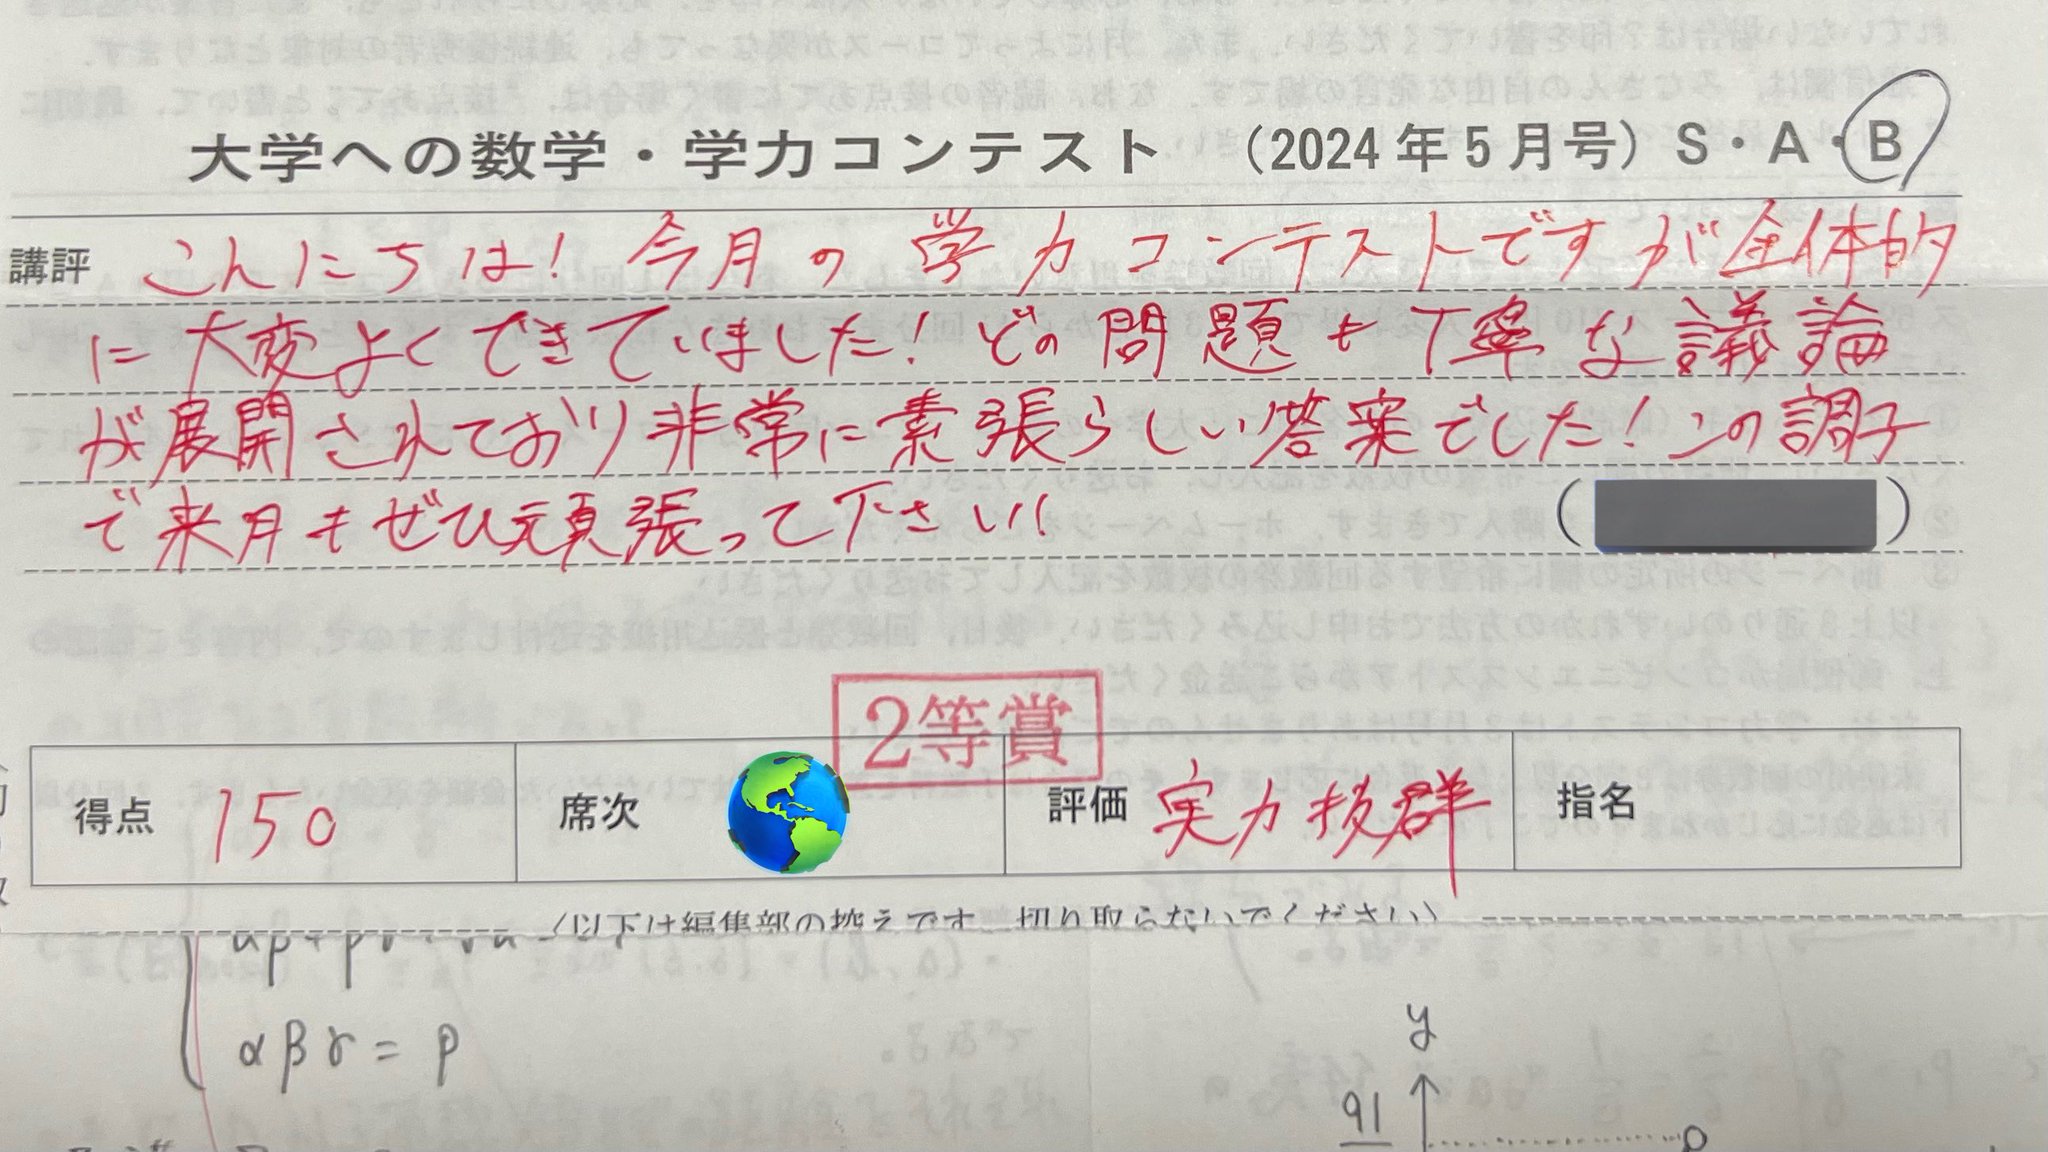 大学への数学・学力コンテスト （2024年5月号）S・A・B
講評 こんにちは！今月の学力コンテストですが全体的
に大変よくできていました！どの問題も丁寧な議論
が展開されており非常に素張らしい答案でした！この調子
で来月もぜひ頑張って下さい！
（ ）
2等賞
得点 150 席次 評価 実力抜群 指名
（以下は編集部の控えです．切り取らないでください）
αβγ = p
y
91
P